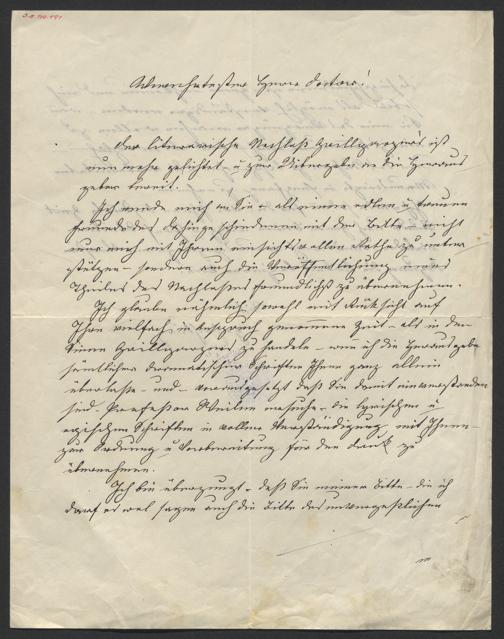 Verehrtester Herr Doctor!
Der literarische Nachlaß Grillparzer's ist
nun mehr gesichtet u zur Übergabe an die Heraus
geber bereit.
Ich wende mich an Sie – als einen edlen u treuen
Freund des Dahingeschiedenen mit der Bitte – nicht
nur mich mit Ihrem einsichtsvollen Rathe zu unter
stützen – sondern auch die Veröffentlichung eines
Theiles des Nachlasses freundlichst zu übernehmen.
Ich glaube nähmlich sowohl mit Rücksicht auf
Ihre vielfach in Anspruch genommene Zeit – als in dem
Sinne Grillparzers zu handeln – wenn ich die Herausgabe
sämtlicher dramatischer Schriften Ihnen ganz allein
überlasse – und – vorausgesetzt daß Sie damit einverstanden
sind – Professor Weilen ersuche – die lyrischen u
epischen Schriften in vollem Verständigung mit Ihnen –
zur Ordnung u Vorbereitung für den Druck zu
übernehmen.
Ich bin überzeugt – daß Sie meiner Bitte – die ich
darf es wol sagen auch die Bitte des unvergeßlichen